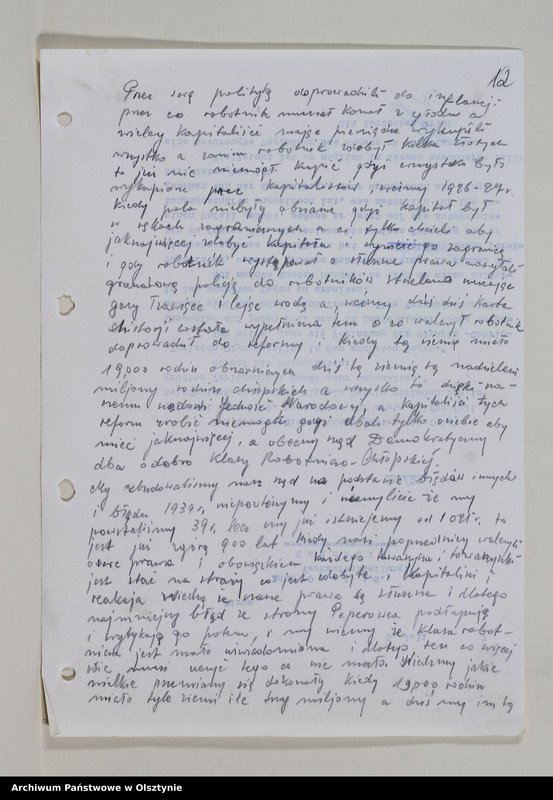 12
Przez swą politykę doprowadzili do inflacji
przez co robotnik musiał konać z głodu a
wielcy kapitaliści mając pieniądze wykupili
wszystko a zanim robotnik zdobył kilka złotych
to już nic niemógł kupić gdyż wszystko było
wykupione przez kapitalistów 1926-27r.
kiedy pola niebyły obsiane gdyż kapitał był
w rękach zagranicznych a ci tylko chcieli aby
jaknajwięcej zdobyć kapitału i wywieść go zagranicę
i gdy robotnik występował o słuszne prawa nasyłali
granatową policję do robotników strzelano
gazy łzawiące i lejąc wodą a dziś karta
historji została wypełniona tem o co walczył robotnik
doprowadził do reformy i kiedy tę ziemię miało
19,000 rodzin obszarniczych dziś tą ziemią są nadzieleni
miljony rodzin chłopskich a wszystko to dzięki na-
szemu rządowi Jedności Narodowej, a kapitaliści tych
reform zrobić niemogli gdyż dbali tylko o siebie aby
mieć jaknajwięcej, a obecny rząd Demokratyczny
dba o dobro klasy Robotniczo-Chłopskiej.
My zbudowaliśmy nasz rząd na podstawie błędów innych
i błędu 1939r. niepowtórzymy i niemyślcie że my
powstaliśmy lecz my już istniejemy od to
jest już 900 lat kiedy nasi poprzednicy walczyli
o swe prawa i obowiązkiem każdego towarzysza i towarzyszki
jest stać na straży co jest zdobyte, kapitaliści i
reakcja wiedzą że nasze prawa są słuszne i dlatego
najmniejszy błąd ze strony Peperowca podłapują
i wytykają go potem, i my wiemy że klasa robot-
nicza jest mało uświadomiona i dlatego ten co więcej
wie musi uczyć tego co wie mało. Widzimy jakie
wielkie przemiany się dokonały kiedy 19,000 rodzin
miało tyle ziemi ile trzy miljony a dziś my im tą
Archiwum Państwowe w Olsztynie